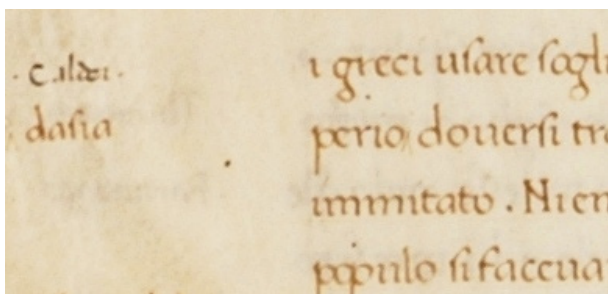 · Caldei ·
dasia
i greci usare sogli
perio doversi tra
immitato . Nien
populo si faceva